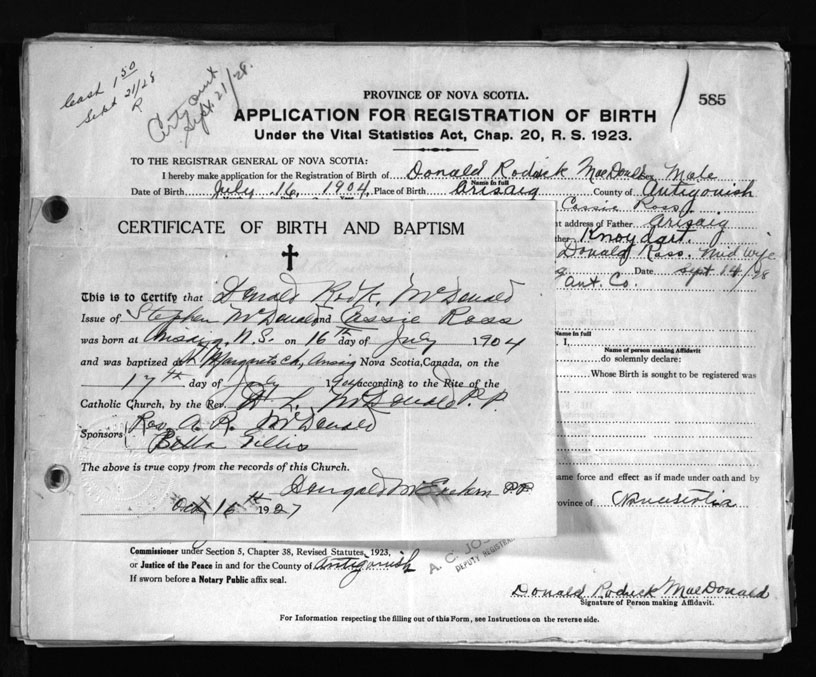 Cash 1 50
Sept 21/28
R
Cert out
Sept 21/28.
585
PROVINCE OF NOVA SCOTIA.
APPLICATION FOR REGISTRATION OF BIRTH
Under the Vital Statistics Act, Chap. 20, R. S. 1923.
TO THE REGISTRAR GENERAL OF NOVA SCOTIA:
I hereby make application for the Registration of Birth of Donald Rodrick MacDonald Male
Name in full
Date of Birth July 16 1904 Place of Birth Arisaig County of Antigonish
Cassie Ross
address of Father Arisaig
Knoydart.
Donald Ross. Mid wife
Date Sept 14/28
Ant. Co.
Name in full
I,
Name of person making Affidavit
do solemnly declare:
Whose Birth is sought to be registered was
ame force and effect as if made under oath and by
ovince of Nova Scotia
CERTIFICATE OF BIRTH AND BAPTISM
This is to Certify that Donald Rod'k. McDonald
Issue of Stephen McDonald and Cassie Ross
was born at Arisaig, N.S. on 16th day of July 1904
and was baptized at St Margarets Ch, Arisaig Nova Scotia, Canada, on the
17th day of July 1904 according to the Rite of the
Catholic Church, by the Rev. McDonald P. P.
Sponsors Rev. A. R. McDonald
Bella Gillis
The above is true copy from the records of this Church.
Dougald McEachern P.P.
Oct 15th 1927
Commissioner under Section 5, Chapter 38, Revised Statutes, 1923,
or Justice of the Peace in and for the County of Antigonish
If sworn before a Notary Public affix seal.
A. C. JOS
DEPUTY REGISTRAR
Donald Rodrick MacDonald
Signature of Person making Affidavit.
For Information respecting the filling out of this Form, see Instructions on the reverse side.